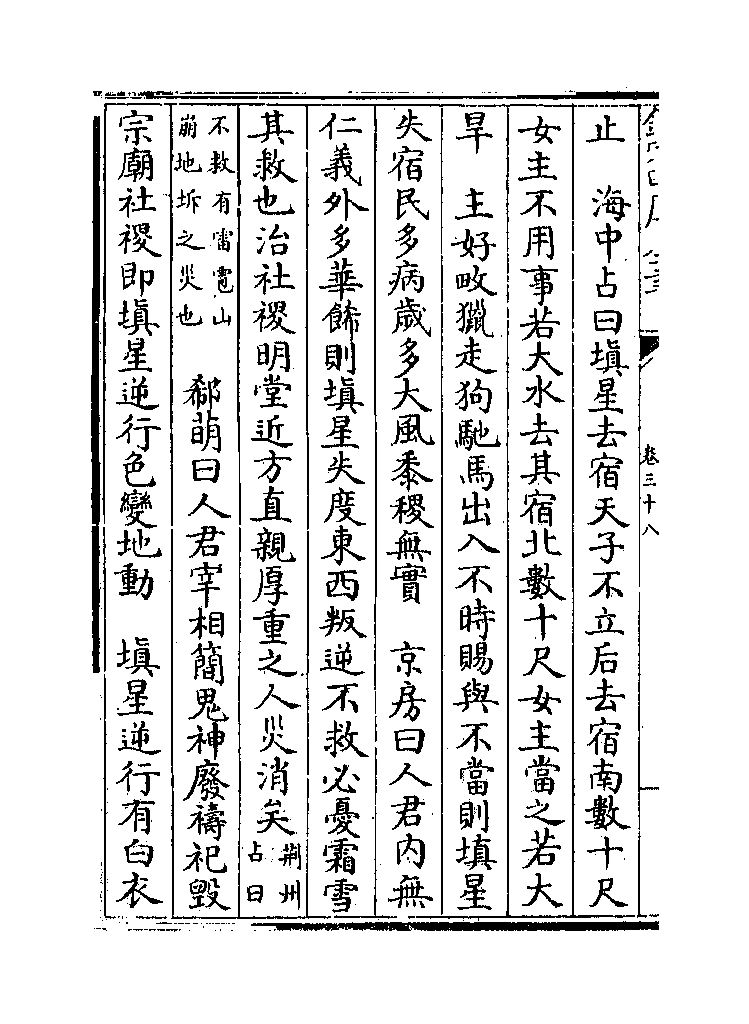 止　海中占曰塡星去宿天子不立后去宿南數十尺
女主不用事若大水去其宿北數十尺女主當之若大
旱　主好畋獵走狗馳馬出入不時賜與不當則塡星
失宿民多病歲多大風黍稷無實　京房曰人君内無
仁義外多華餙則塡星失度東西叛逆不救必憂霜雪
其救也治社稷明堂近方直親厚重之人災消矣荆州占曰
不救有雷雹山崩地坼之災也　郗萌曰人君宰相簡鬼神廢禱祀毁
宗廟社稷即塡星逆行色變地動　塡星逆行有白衣
卷三十八